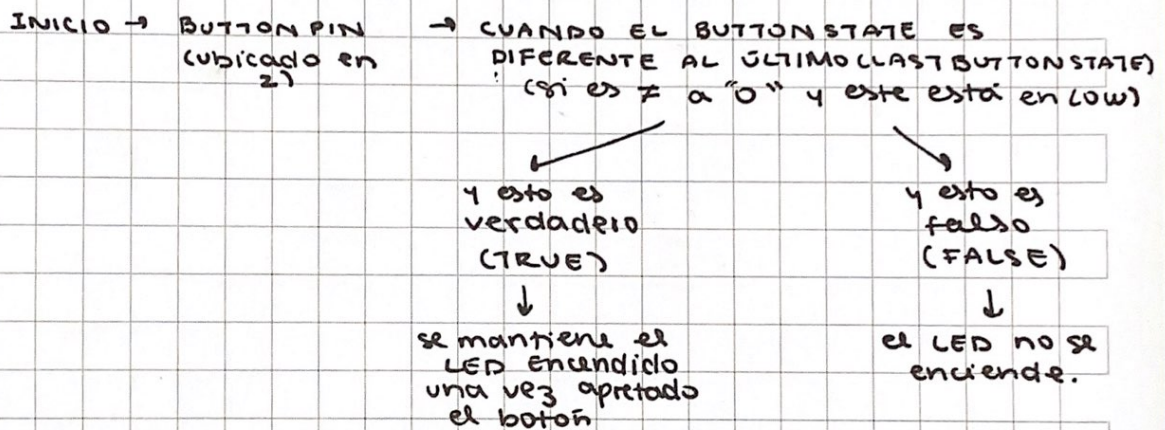 INICIO → BUTTON PIN → CUANDO EL BUTTON STATE ES
(ubicado en 2)
DIFERENTE AL ÚLTIMO (LAST BUTTON STATE)
(si es ≠ a "0" y este está en LOW)
y esto es
verdadero
(TRUE)
↓
se mantiene el
LED Encendido
una vez apretado
el botón
y esto es
falso
(FALSE)
↓
el LED no se
enciende.